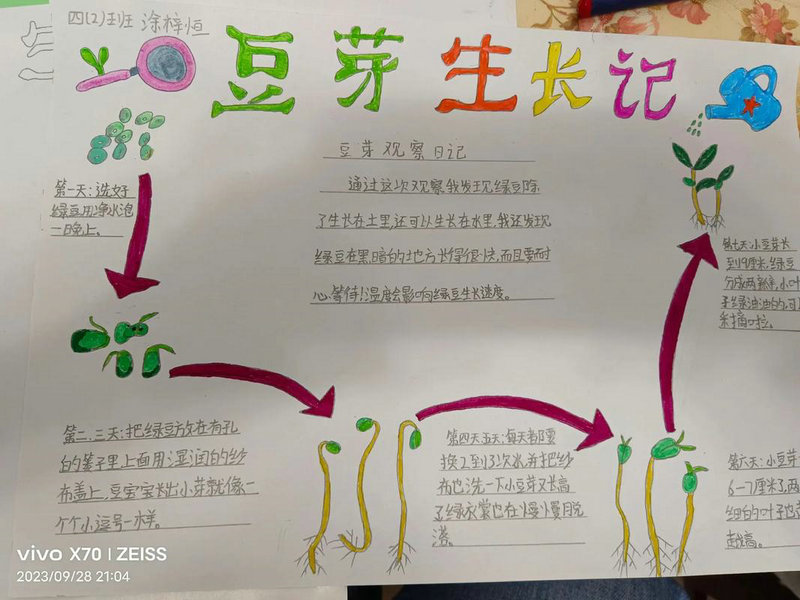 四(2)班 涂梓恒
豆芽生长记
豆芽观察日记
通过这次观察我发现绿豆除
了生长在土里,还可以生长在水里,我还发现
绿豆在黑暗的地方长得很快,而且要耐
心等待!温度会影响绿豆生长速度。
第一天:选好
绿豆用净水泡
一日晚上。
第二、三天:把绿豆放在有孔
的篮子里上面用湿润的纱
布盖上,豆宝宝长出小芽就像一
个个小逗号一样。
第四天五天:每天都要
换2到3次水,并把纱
布也洗一下小豆芽又长高
了绿衣裳也在慢慢脱
落。
第六天:小豆芽
6-7厘米了,两
细的叶子也
越高。
第七天:小豆芽长
到9厘米,绿豆
分成两瓣,小叶
子绿油油的,可
采摘啦。
vivo X70 | ZEISS
2023/09/28 21:04